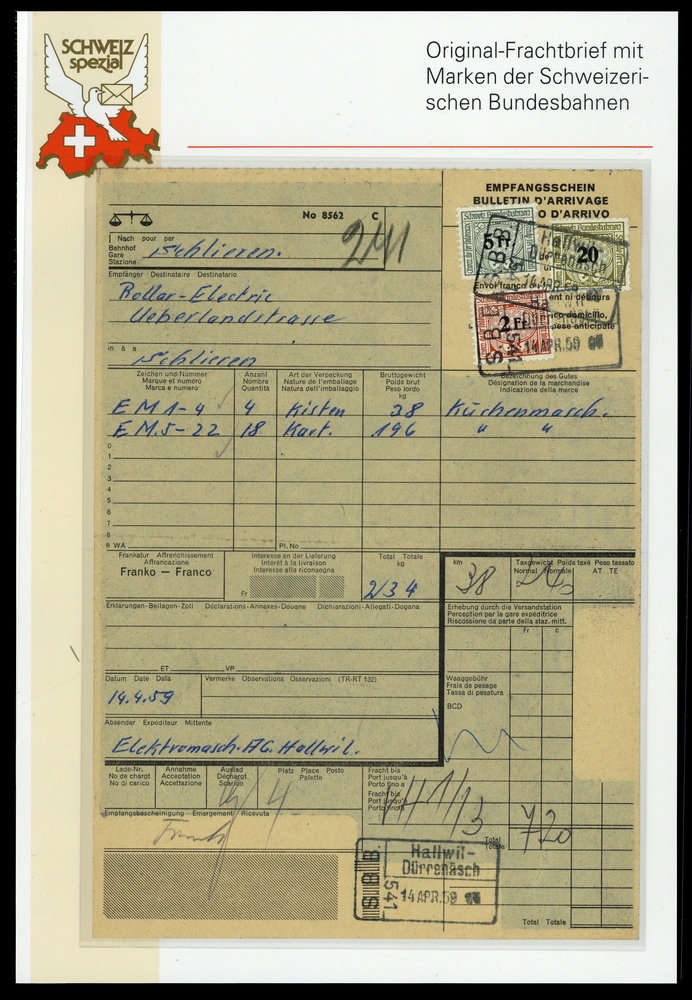 SCHWEIZ
spezial
Original-Frachtbrief mit
Marken der Schweizeri-
schen Bundesbahnen
EMPFANGSSCHEIN
BULLETIN D'ARRIVAGE
O D'ARRIVO
No 8562 C
Nach pour per
Bahnhof
Gare
Stazione
Schlieren.
241
Schweiz. Bundesbahnen
5 Fr.
20
2 Fr.
Hallwil-
Dürrenäsch
14 APR. 59
Envoi franco
ent ni débours
co domicilio,
pese anticipate
SBB
541
14 APR. 59
Empfänger Destinataire Destinatario
Rotar-Electric
Ueberlandstrasse
in à a
Schlieren
Zeichen und Nummer
Marque et numéro
Marca e numero
Anzahl
Nombre
Quantità
Art der Verpackung
Nature de l'emballage
Natura dell'imballaggio
Bruttogewicht
Poids brut
Peso lordo
kg
Bezeichnung des Gutes
Désignation de la marchandise
Indicazione della merce
EM 1-4 4 Kisten 38 Küchenmasch.
EM.5-22 18 Kart. 196 " "
0
1
2
3
4
5
6
7
8
9 WA
Pl. No
Frankatur Affranchissement
Affrancazione
Franko — Franco
Interesse an der Lieferung
Intérêt à la livraison
Interesse alla riconsegna
Fr
Total Totale
kg
234
km
38
Taxgewicht Poids taxé Peso tassato
Normal Normale AT TE
Erklärungen-Beilagen-Zoll Déclarations-Annexes-Douane Dichiarazioni-Allegati-Dogana
Erhebung durch die Versandstation
Perception par la gare expéditrice
Riscossione da parte della staz. mitt.
Fr c
ET
VP
Datum Date Data
14.4.59
Vermerke Observations Osservazioni (TR-RT 132)
Waaggebühr
Frais de pesage
Tassa di pesatura
BCD
Absender Expéditeur Mittente
Elektromasch. AG. Hallwil.
Lade-Nr.
No de charg!
No di carico
Annahme
Acceptation
Accettazione
Auslad
Décharg!
Scarico
Platz Place Posto
Palette
Fracht bis
Port jusqu'à
Porto fino a
Fracht bis
Port jusqu'à
Porto fino a
Empfangsbescheinigung Emargement Ricevuta
Total
Totale
720
SBB
541
Hallwil-
Dürrenäsch
14 APR. 59
Total Totale